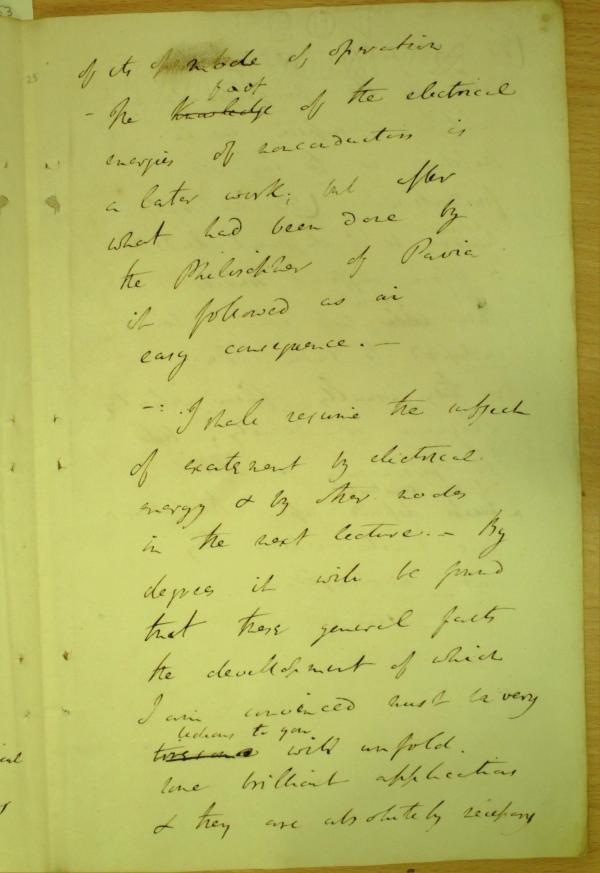 of its mode of operation
- The fact Knowledge of the electrical
energies of nonconductors is
a later work; but after
what had been done by
the Philosopher of Pavia
it followed as an
easy consequence. —
—: I shall resume the subject
of excitement by electrical
energy & by other modes
in the next lecture. — By
degrees it will be found
that these general facts
the development of which
I am convinced must be very
tedious to you
tiresome will unfold.
some brilliant applications
& they are absolutely necessary